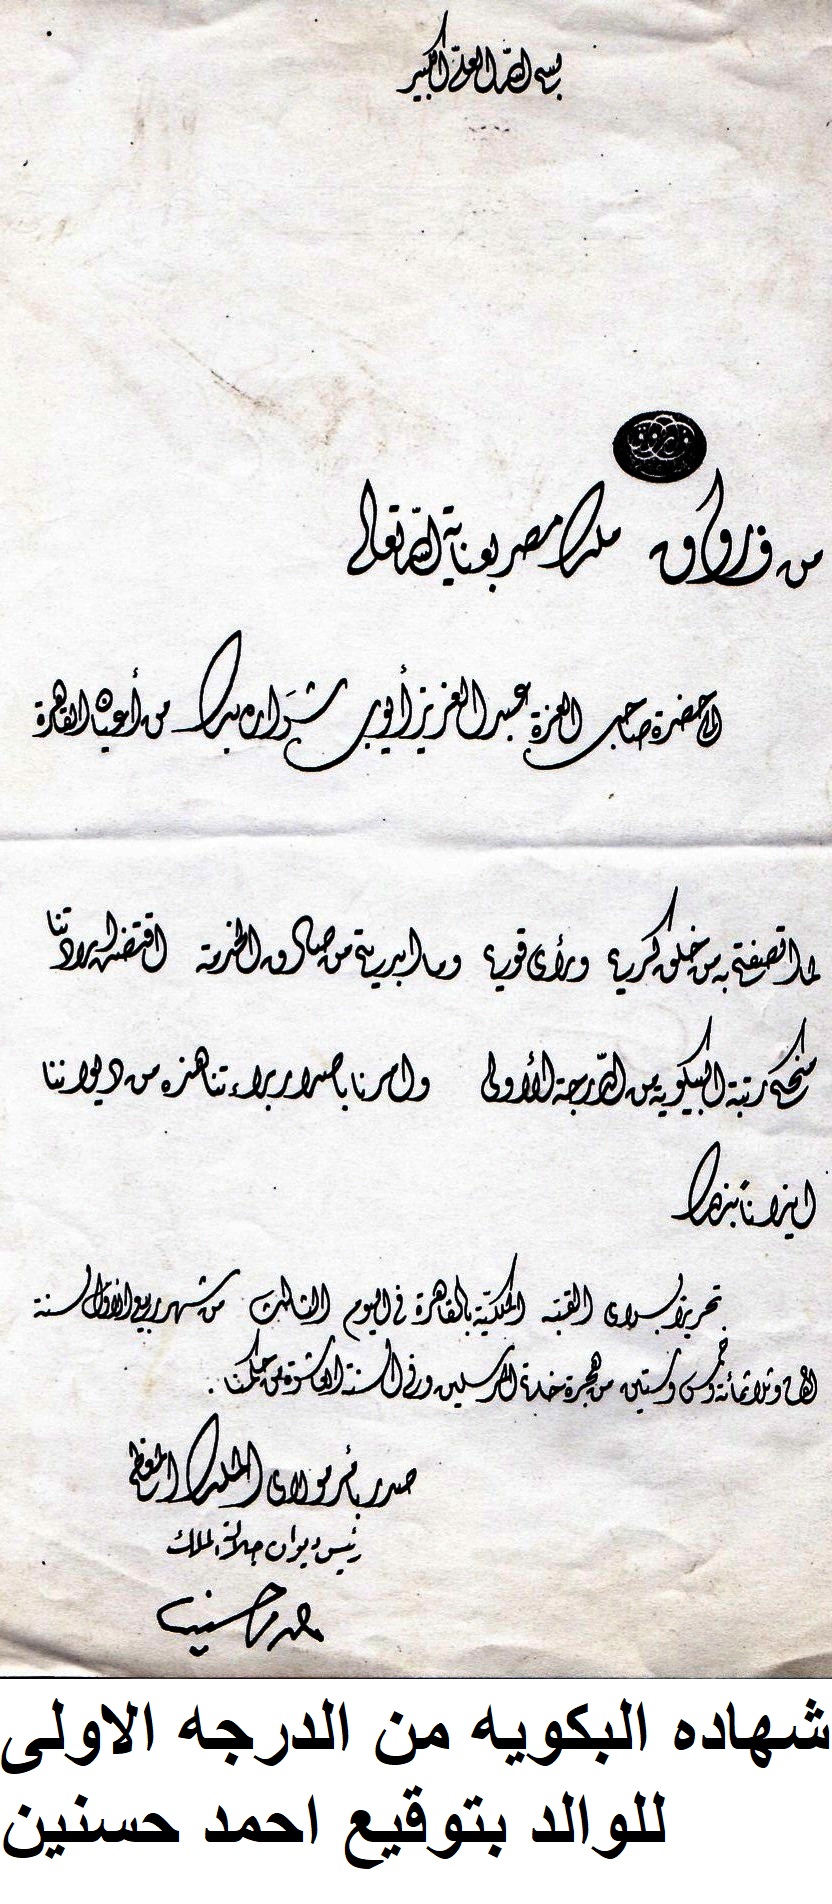 بسم الله العلي الكبير
فاروق
من فاروق ملك مصر بعناية الله تعالى
الى حضرة صاحب العزة عبد العزيز أيوب بك من أعيان القاهرة
لما اتصفتم به من خلق كريم ورأى قويم وما ابديتم من صادق الخدمة اقتضت ارادتنا
منحكم رتبة البيكوية من الدرجة الأولى وامرنا باصدار براءتنا هذه من ديواننا
ايذانا بذلك
تحريرا بسراى القبة الملكية بالقاهرة فى اليوم الثالث من شهر ربيع الاول سنة
الف وثلاثمائة وخمس وستين من هجرة خاتم المرسلين وفى السنة العاشرة من حكمنا .
صدر بأمر مولاى الملك المعظم
رئيس ديوان جلالة الملك
احمد حسنين
شهاده البكويه من الدرجه الاولى
للوالد بتوقيع احمد حسنين